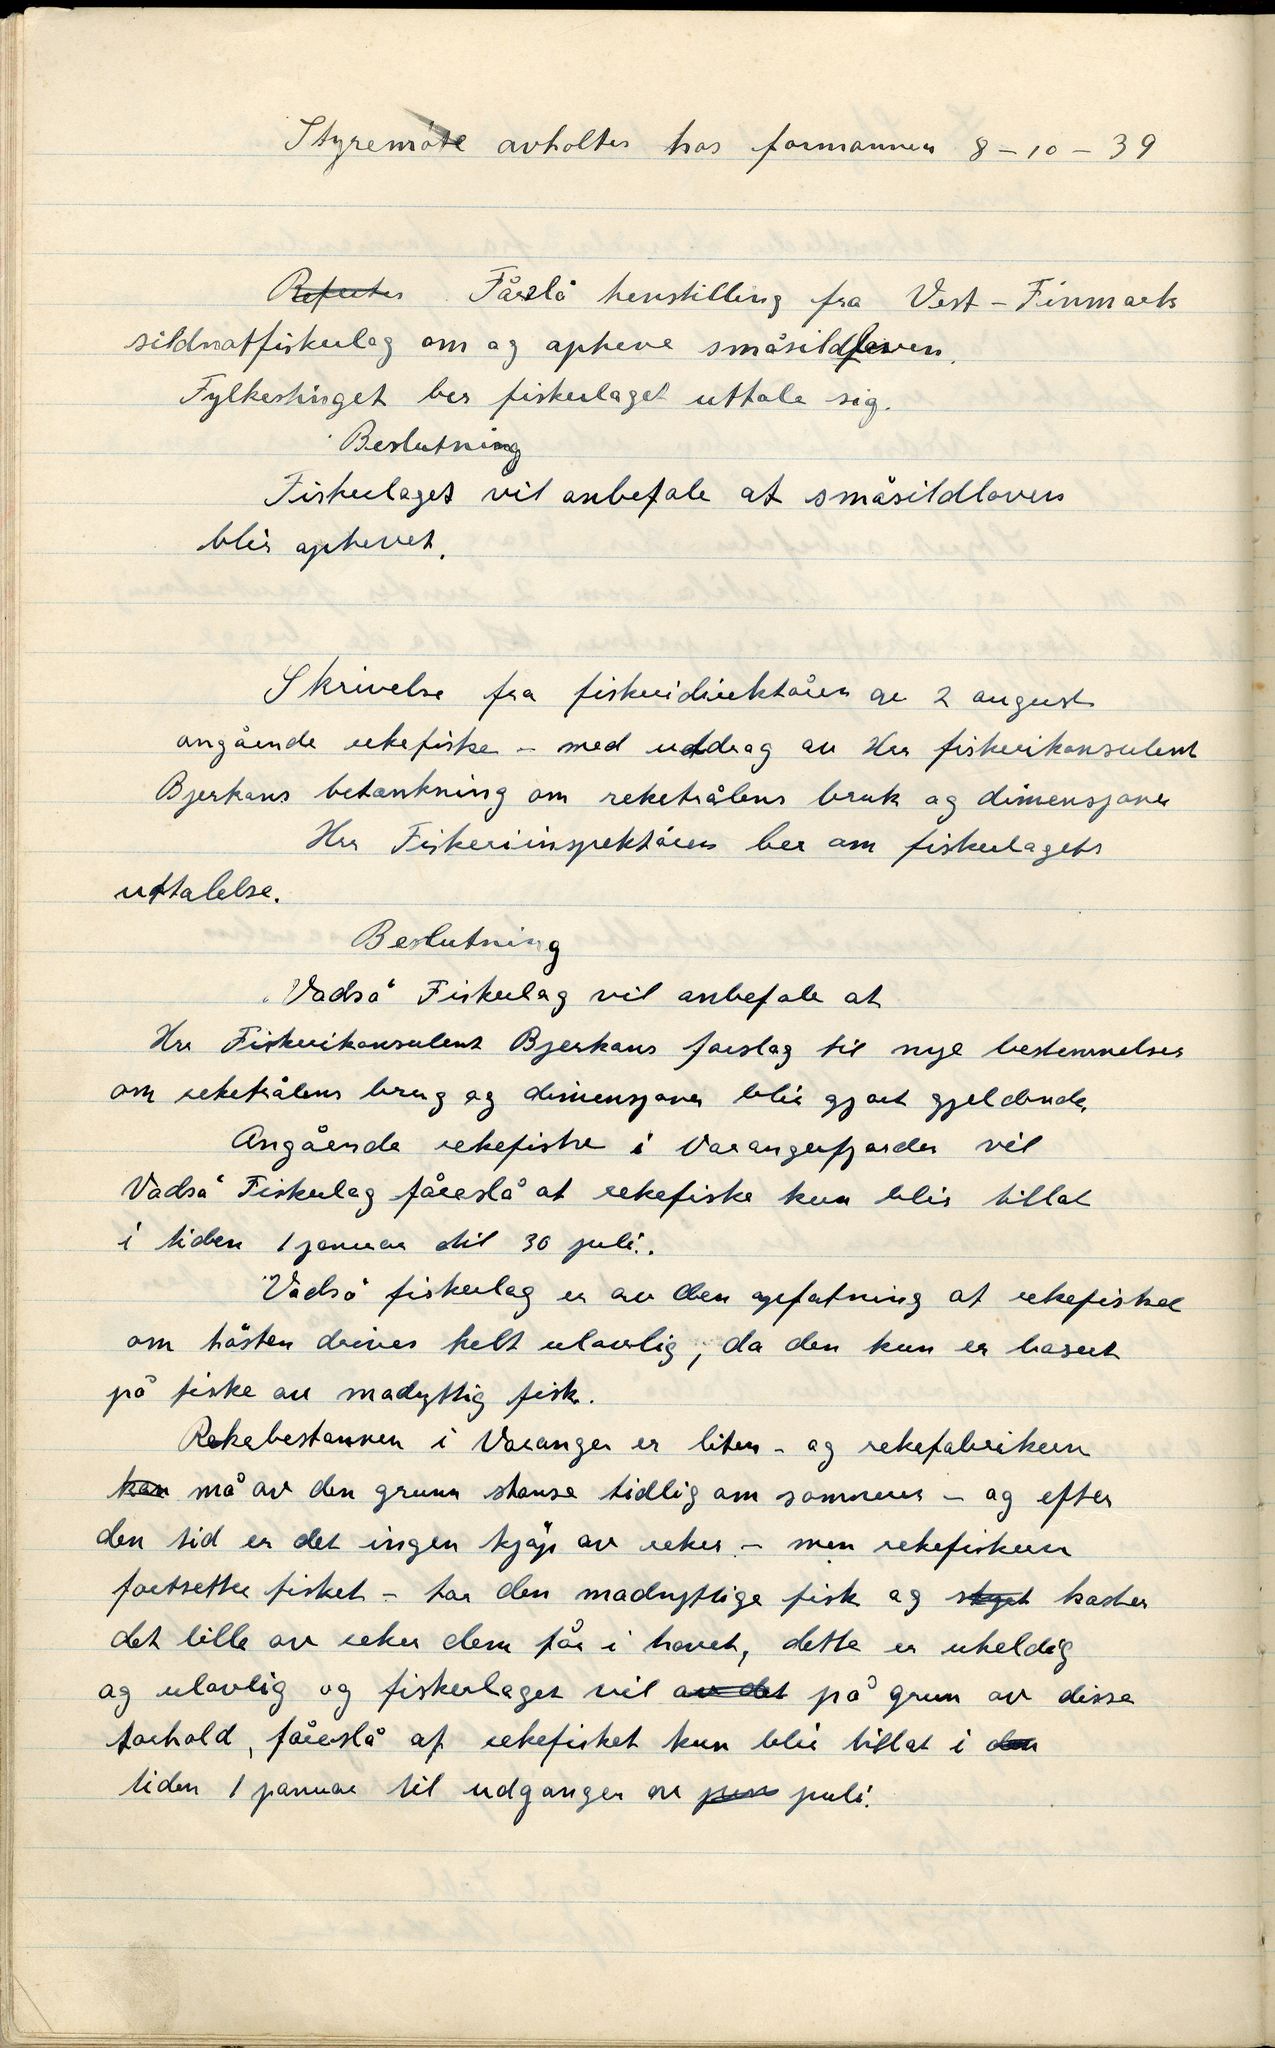 Styremöte avholtes hos formannen 8-10-39
Refertes Fårelå henstilling fra Vest-Finmark
sildnotfiskerlag om og opheve småsildloven.
Fylkestinget ber fiskerlaget uttale sig.
Beslutning
Fiskerlaget vil anbefale at småsildloven
blir ophevet.
Skrivelse fra fiskeridirektören av 2 august
angående rekefiske - med utdrag av Herr fiskerikonsulent
Bjerkans betænkning om reketrålens bruk og dimensjoner
Herr Fiskeriinspektören ber om fiskerlagets
uttalelse.
Beslutning
Vadsö Fiskerlag vil anbefale at
Herr Fiskerikonsulent Bjerkans forslag til nye bestemmelser
om reketrålens brug og dimensjoner blir gjort gjeldende
Angående rekefiske i Varangerfjorden vil
Vadsö Fiskerlag föreslå at rekefiske kun blir tillat
i tiden 1 januar til 30 juli.
Vadsö fiskerlag er av den opfatning at rekefisket
om hösten drives helt ulovlig, da den kun er basert
på fiske av madnyttig fisk.
Rekebestannen i Varanger er liten - og rekefabrikken
kan må av den grunn stanse tidlig om sommeren - og efter
den tid er det ingen kjöp av reker - men rekefiskeren
fortsetter fisket - tar den madnyttige fisk og styrt kaster
det lille av reker dem får i havet, dette er uheldig
og ulovlig og fiskerlaget vil av det på grun av disse
forhold, föreslå at rekefisket kun blir tillat i den
tiden 1 januar til udgangen av jun juli.